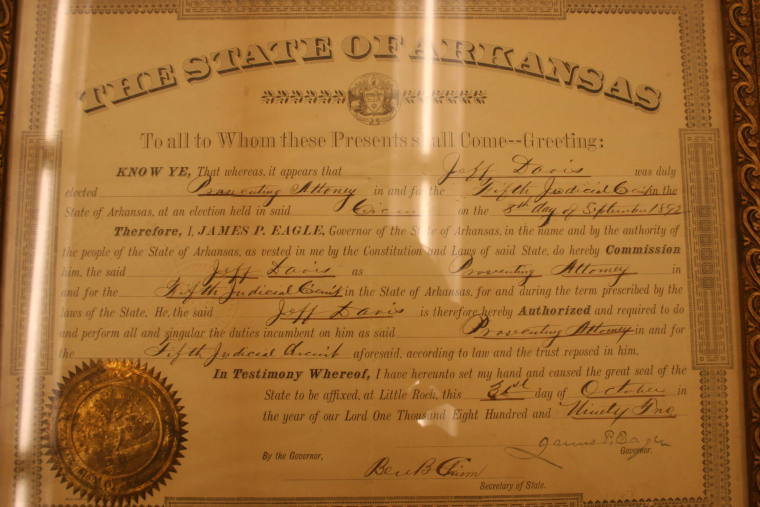 THE STATE OF ARKANSAS
To all to Whom these Presents shall Come--Greeting:
KNOW YE, That whereas, it appears that Jeff Davis was duly
elected Prosecuting Attorney in and for the Fifth Judicial Circuit in the
State of Arkansas, at an election held in said Circuit on the 5th day of September 1892
Therefore, I, JAMES P. EAGLE, Governor of the State of Arkansas, in the name and by the authority of
the people of the State of Arkansas, as vested in me by the Constitution and Laws of said State, do hereby Commission
him, the said Jeff Davis as Prosecuting Attorney in
and for the Fifth Judicial Circuit in the State of Arkansas, for and during the term prescribed by the
laws of the State. He, the said Jeff Davis is therefore hereby Authorized and required to do
and perform all and singular the duties incumbent on him as said Prosecuting Attorney in and for
the Fifth Judicial Circuit aforesaid, according to law and the trust reposed in him.
In Testimony Whereof, I have hereunto set my hand and caused the great seal of the
State to be affixed, at Little Rock, this day of October in
the year of our Lord One Thousand Eight Hundred and Ninety Two
James P. Eagle
Governor.
By the Governor,
Ben B Chism
Secretary of State.